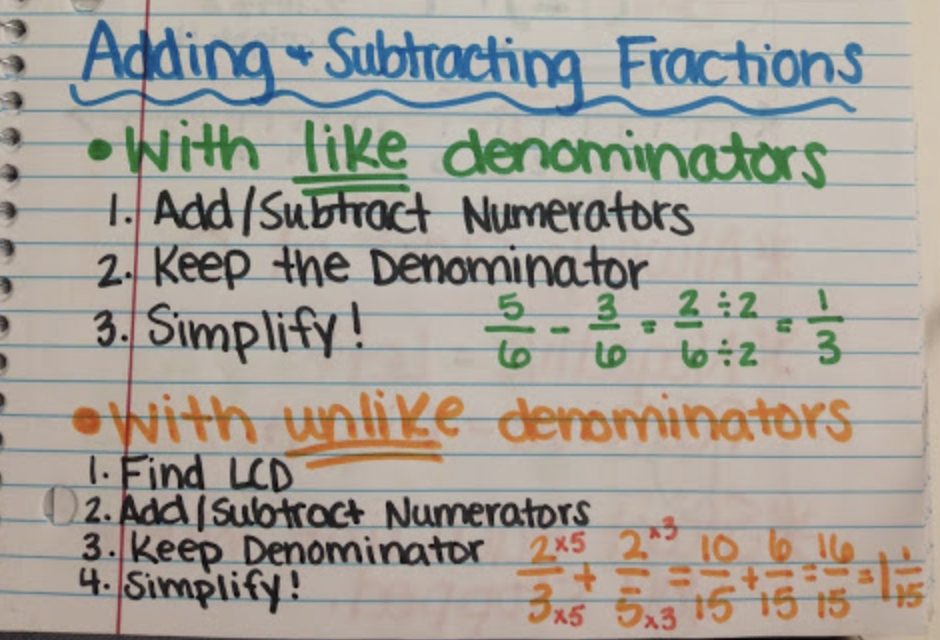 Adding + Subtracting Fractions
• With like denominators
1. Add/Subtract Numerators
2. Keep the Denominator
3. Simplify! 5/6 - 3/6 = 2÷2/6÷2 = 1/3
• With unlike denominators
1. Find LCD
2. Add/Subtract Numerators
3. Keep Denominator
4. Simplify! 2×5/3×5 + 2×3/5×3 = 10/15 + 6/15 = 16/15 = 1 1/15